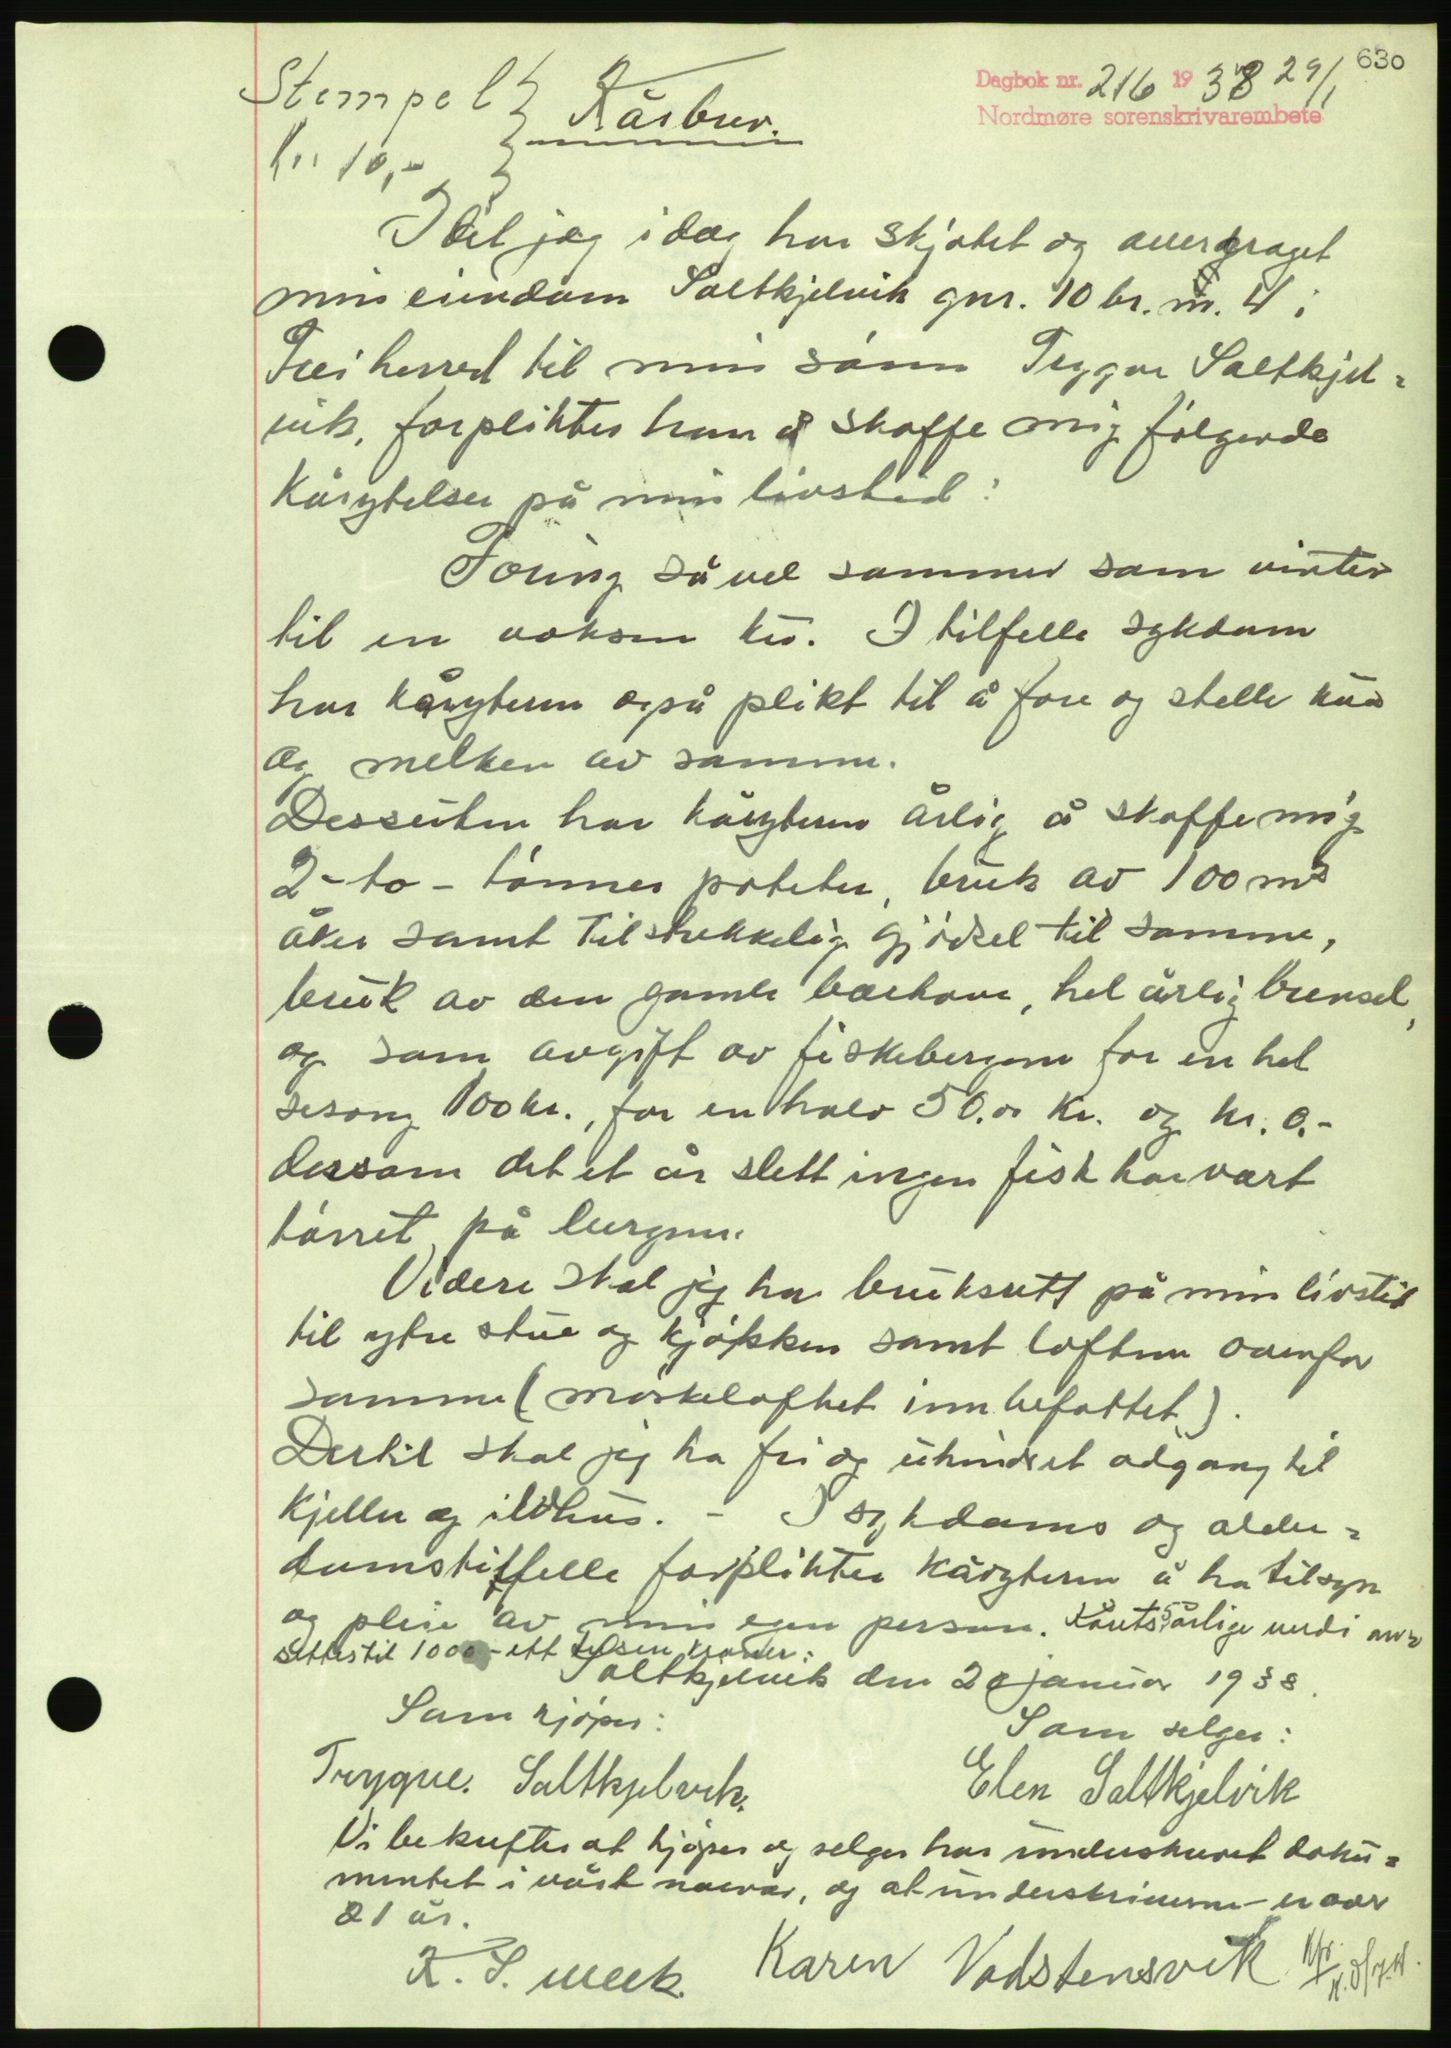 630
Stempel } Kårbrev.
Dagbok nr. 216 1938 29/1
Nordmøre sorenskrivarembete
kr. 10,-
Idet jeg idag har skjøtet og overdraget
min eiendom Saltkjelvik gnr. 10 br. nr. 4 i
Frei herred til min sønn Trygve Saltkjel=
vik, forpliktes han å skaffe mig følgende
kårytelser på min livstid:
Foring såvel sommer som vinter
til en voksen ku. I tilfelle sykdom
har kåryteren også plikt til å fore og stelle kua
og melken av samme.
Dessuten har kåryteren årlig å skaffe mig
2-to-tønner poteter, bruk av 100 m²
åker samt tilstrekkelig gjødsel til samme,
bruk av den gamle bærhave, helårlig brensel,
og som avgift av fiskebergene for en hel
sesong 100 kr., for en halv 50.00 kr. og kr. 0.-
dersom det et år slett ingen fisk har vært
tørret på bergene.
Videre skal jeg ha bruksrett på min livstid
til ytre stue og kjøkken samt loftene ovenfor
samme (mørkeloftet innbefattet).
Dertil skal jeg ha fri og uhindret adgang til
kjeller og ildhus. - I sykdoms og alder=
domstilfelle forplikter kåryteren å ha tilsyn
og pleie av min egen person. Kårets årlige verdi an=
settes til 1000 - ett tusen kroner.
Saltkjelvik den 20 januar 1938.
Som kjøper: Som selger:
Trygve. Saltkjelvik. Elen Saltkjelvik
Vi bekrefter at kjøper og selger har underskrevet doku=
mentet i vårt nærvær, og at underskriverne er over
21 år.
K. S. Meek Karen Vadstensvik